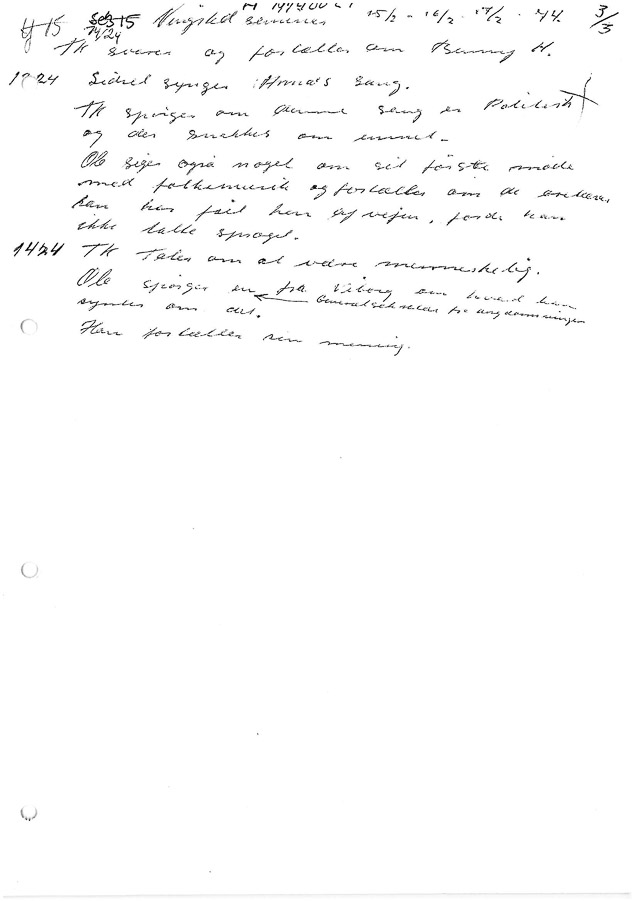 15 Vingsted seminar 15/2 - 16/2 - 17/2 - 74. 3/3
74/24
TK svarer og fortæller om Benny H.
1224 Sidsel synger: Annas sang.
TK spørges om denne sang er Politisk
og der snakkes om emnet.
Ole siger også noget om sit første møde
med folkemusik og fortæller om de
han har fået hen af vejen, fordi han
ikke sproget.
1424 TK Taler om at være menneskelig.
Ole spørger en fra Viborg om hvad han
synes om det. fra ungdomsringen
Han fortæller sin mening.